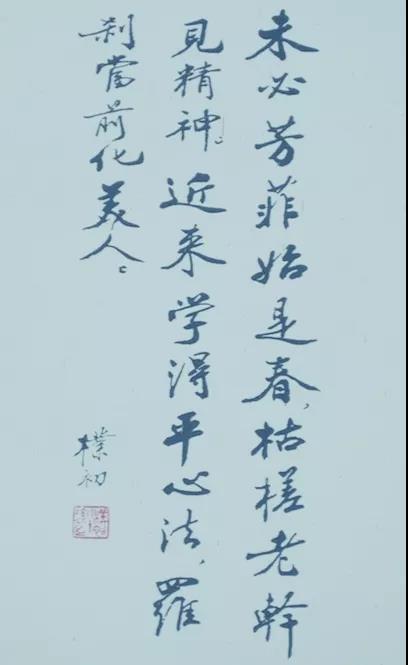 未必芳菲始是春，枯槎老幹
見精神。近来学得平心法，羅
刹當前化美人。
樸初